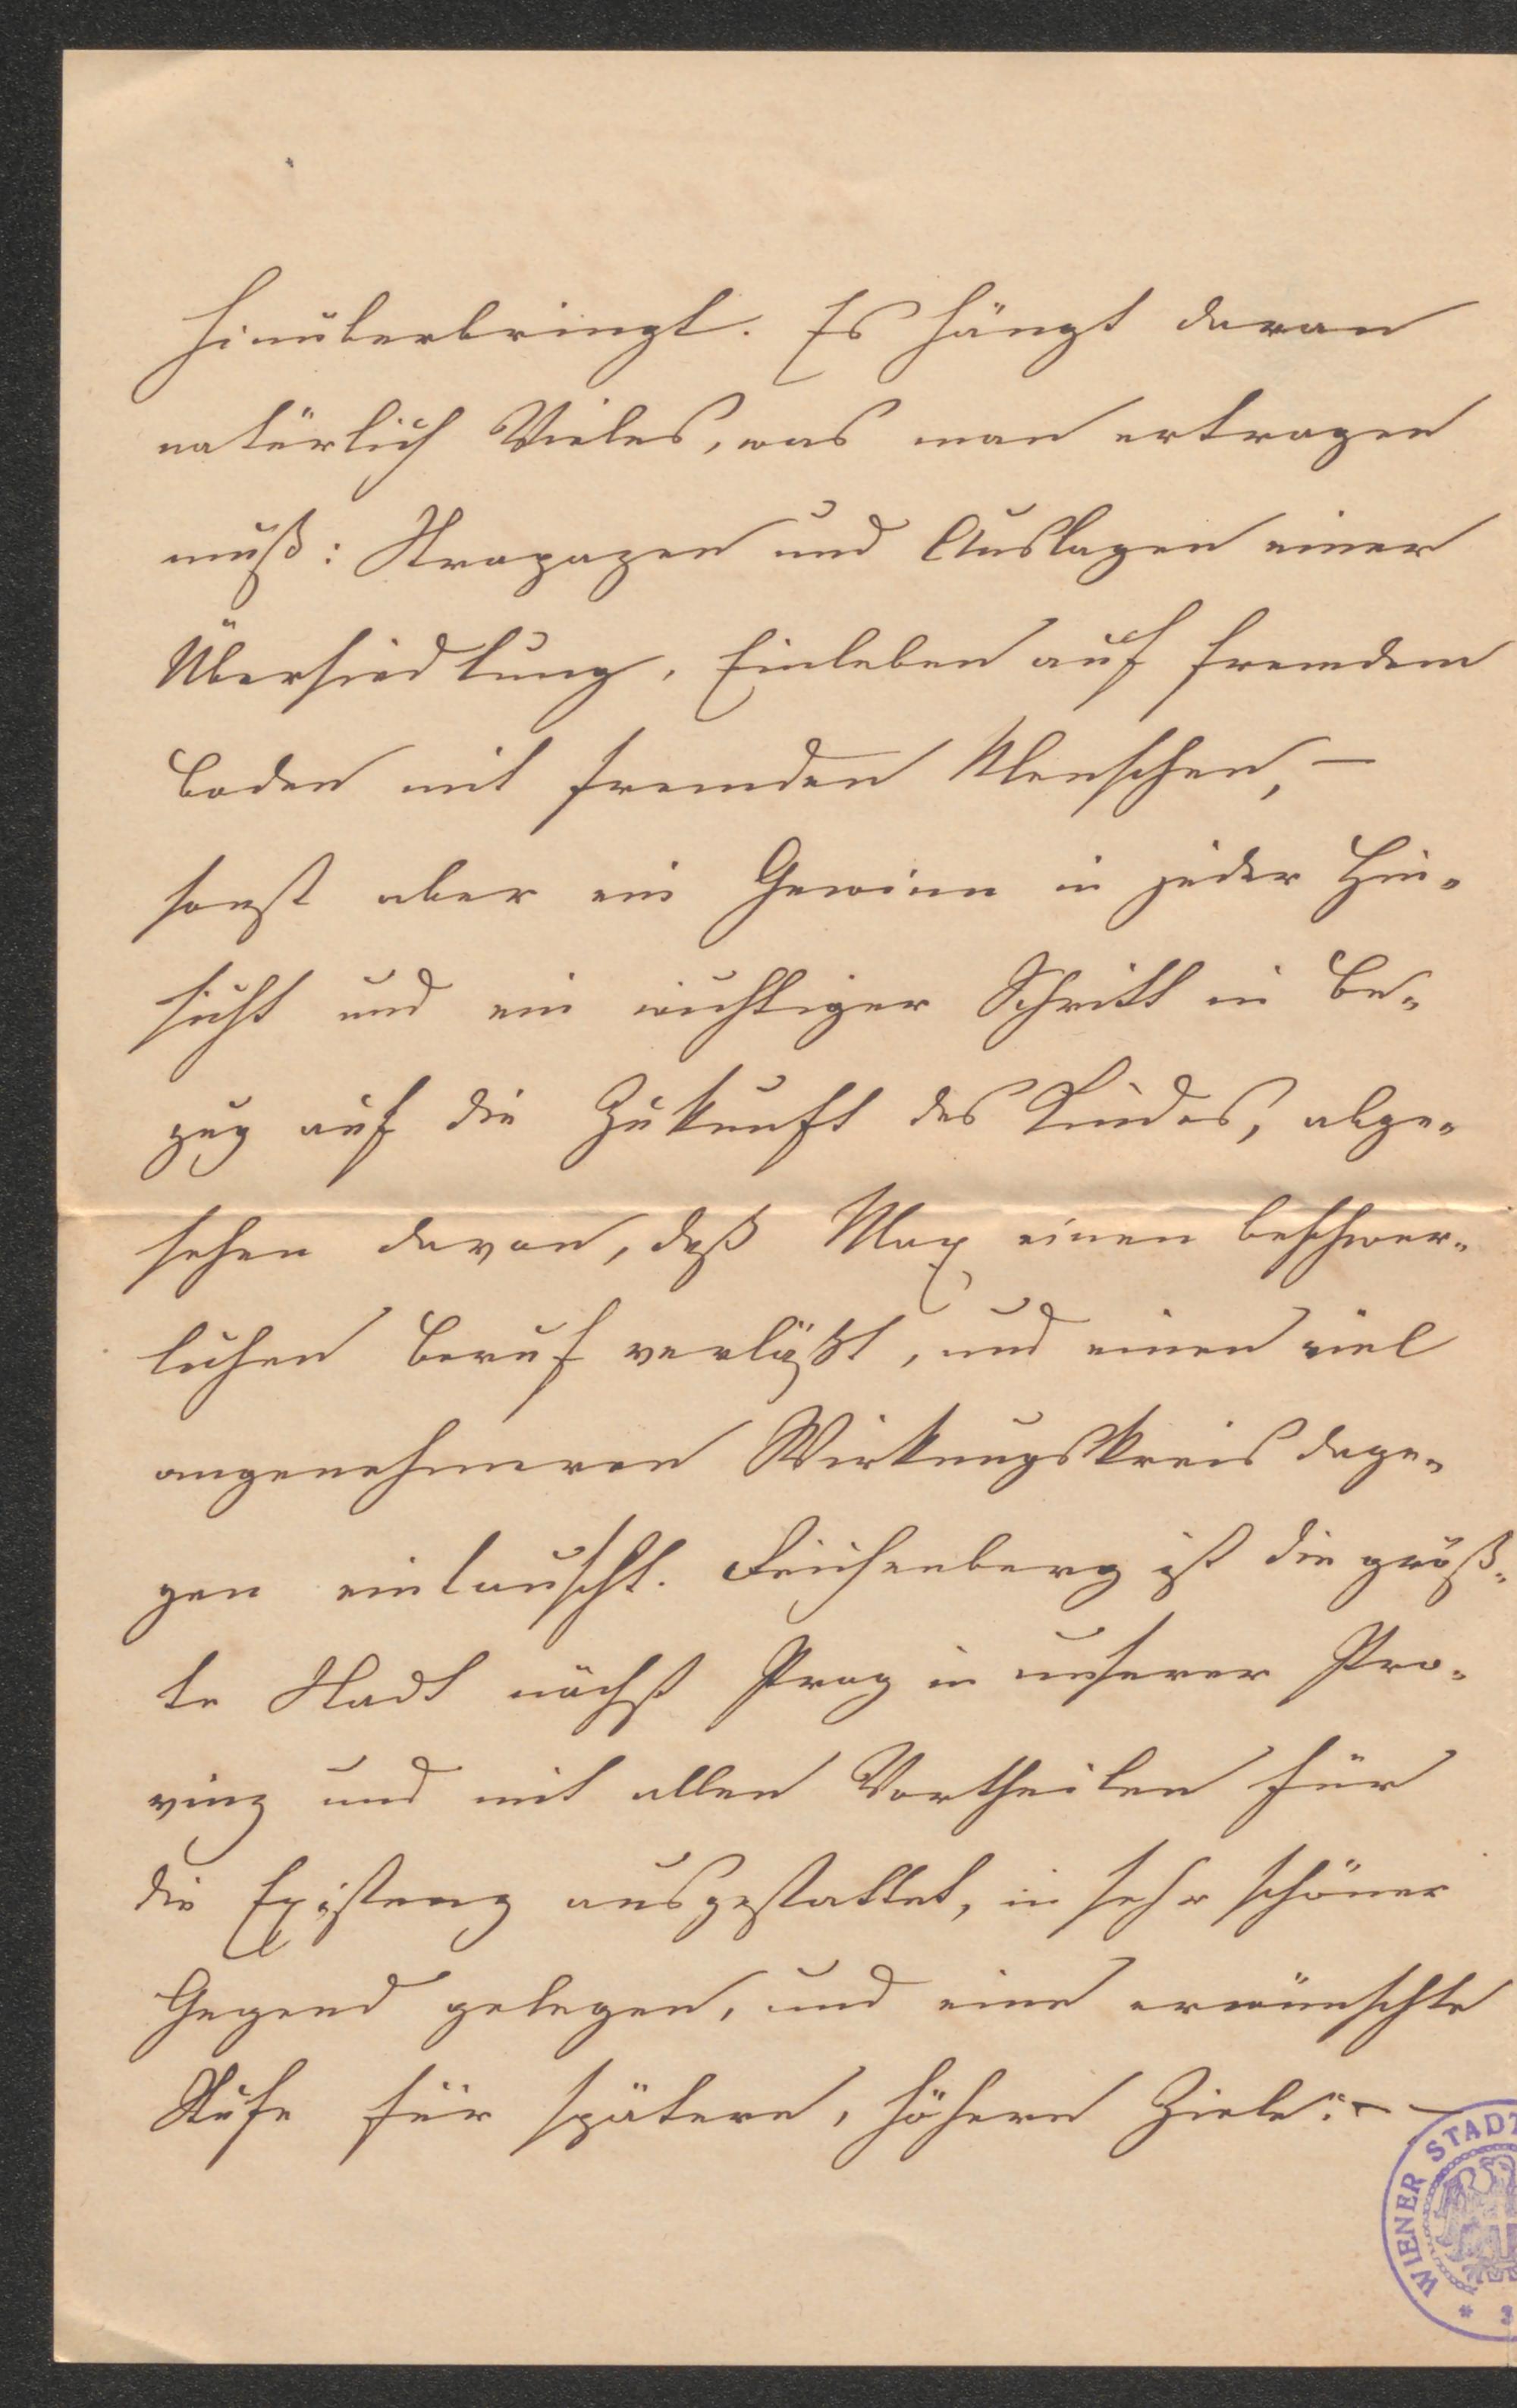 hinüberbringt. Es hängt daran
natürlich Vieles, was man ertragen
muß: Strapazen und Auslagen einer
Übersiedlung, Einleben auf fremdem
Boden mit fremden Menschen, –
sonst aber ein Gewinn in jeder Hin-
sicht und ein wichtiger Schritt in Be-
zug auf die Zukunft des Kindes, abge-
sehen davon, daß Max einen beschwer-
lichen Beruf verläßt, und einen viel
angenehmeren Wirkungskreis dage-
gen eintauscht. Reichenberg ist die größ-
te Stadt nächst Prag in unserer Pro-
vinz und mit allen Vortheilen für
die Existenz ausgestattet, in sehr schöner
Gegend gelegen, und eine erwünschte
Stufe für spätere, höhere Ziele. – –
WIENER STADT